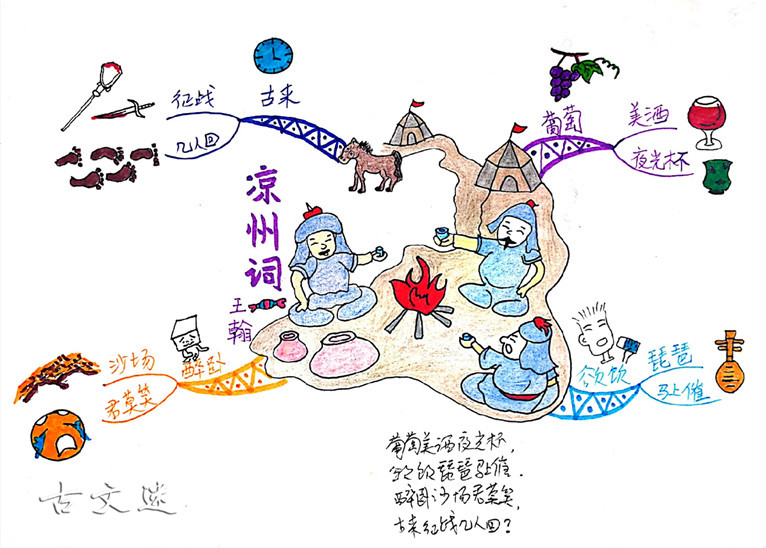 凉州词
王翰
葡萄
美酒
夜光杯
欲饮
琵琶
马上催
醉卧
沙场
君莫笑
古来
征战
几人回
葡萄美酒夜光杯,
欲饮琵琶马上催.
醉卧沙场君莫笑,
古来征战几人回?
古文迷